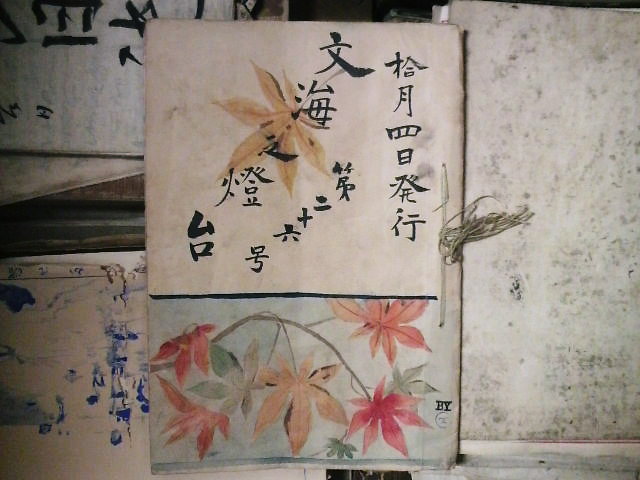 拾月四日発行
文海之燈台
第二十六号
BY